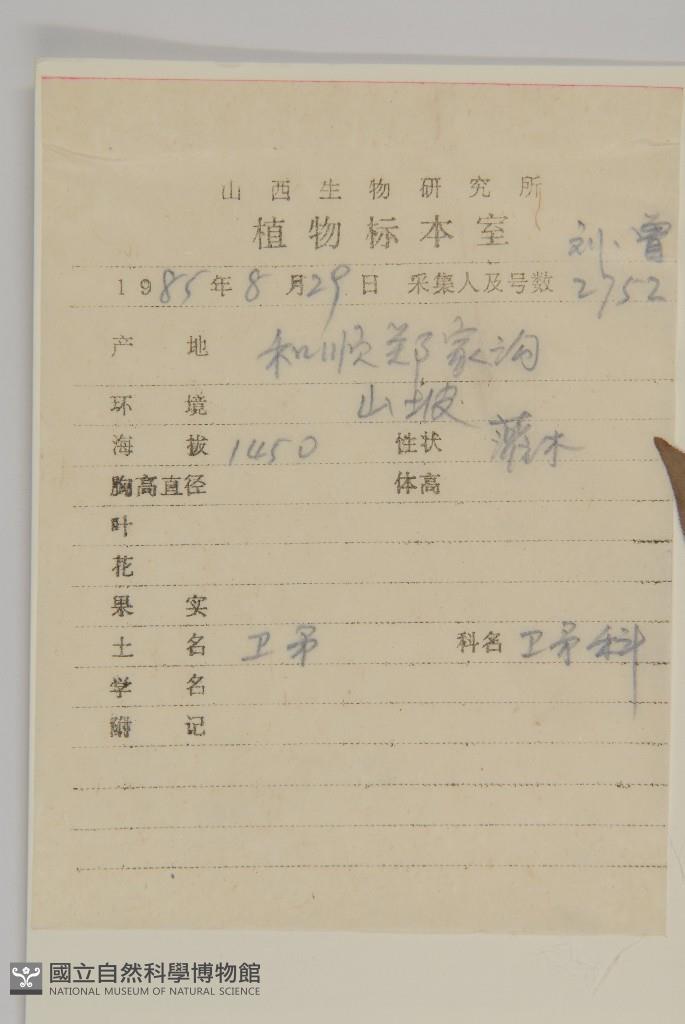 山西生物研究所
植物标本室
刘、曾
1985年8月29日 采集人及号数 2752
产地 和顺郑家沟
环境 山坡
海拔 1450 性状 灌木
胸高直径 体高
叶
花
果实
土名 卫矛 科名 卫矛科
学名
附记
國立自然科學博物館
NATIONAL MUSEUM OF NATURAL SCIENCE